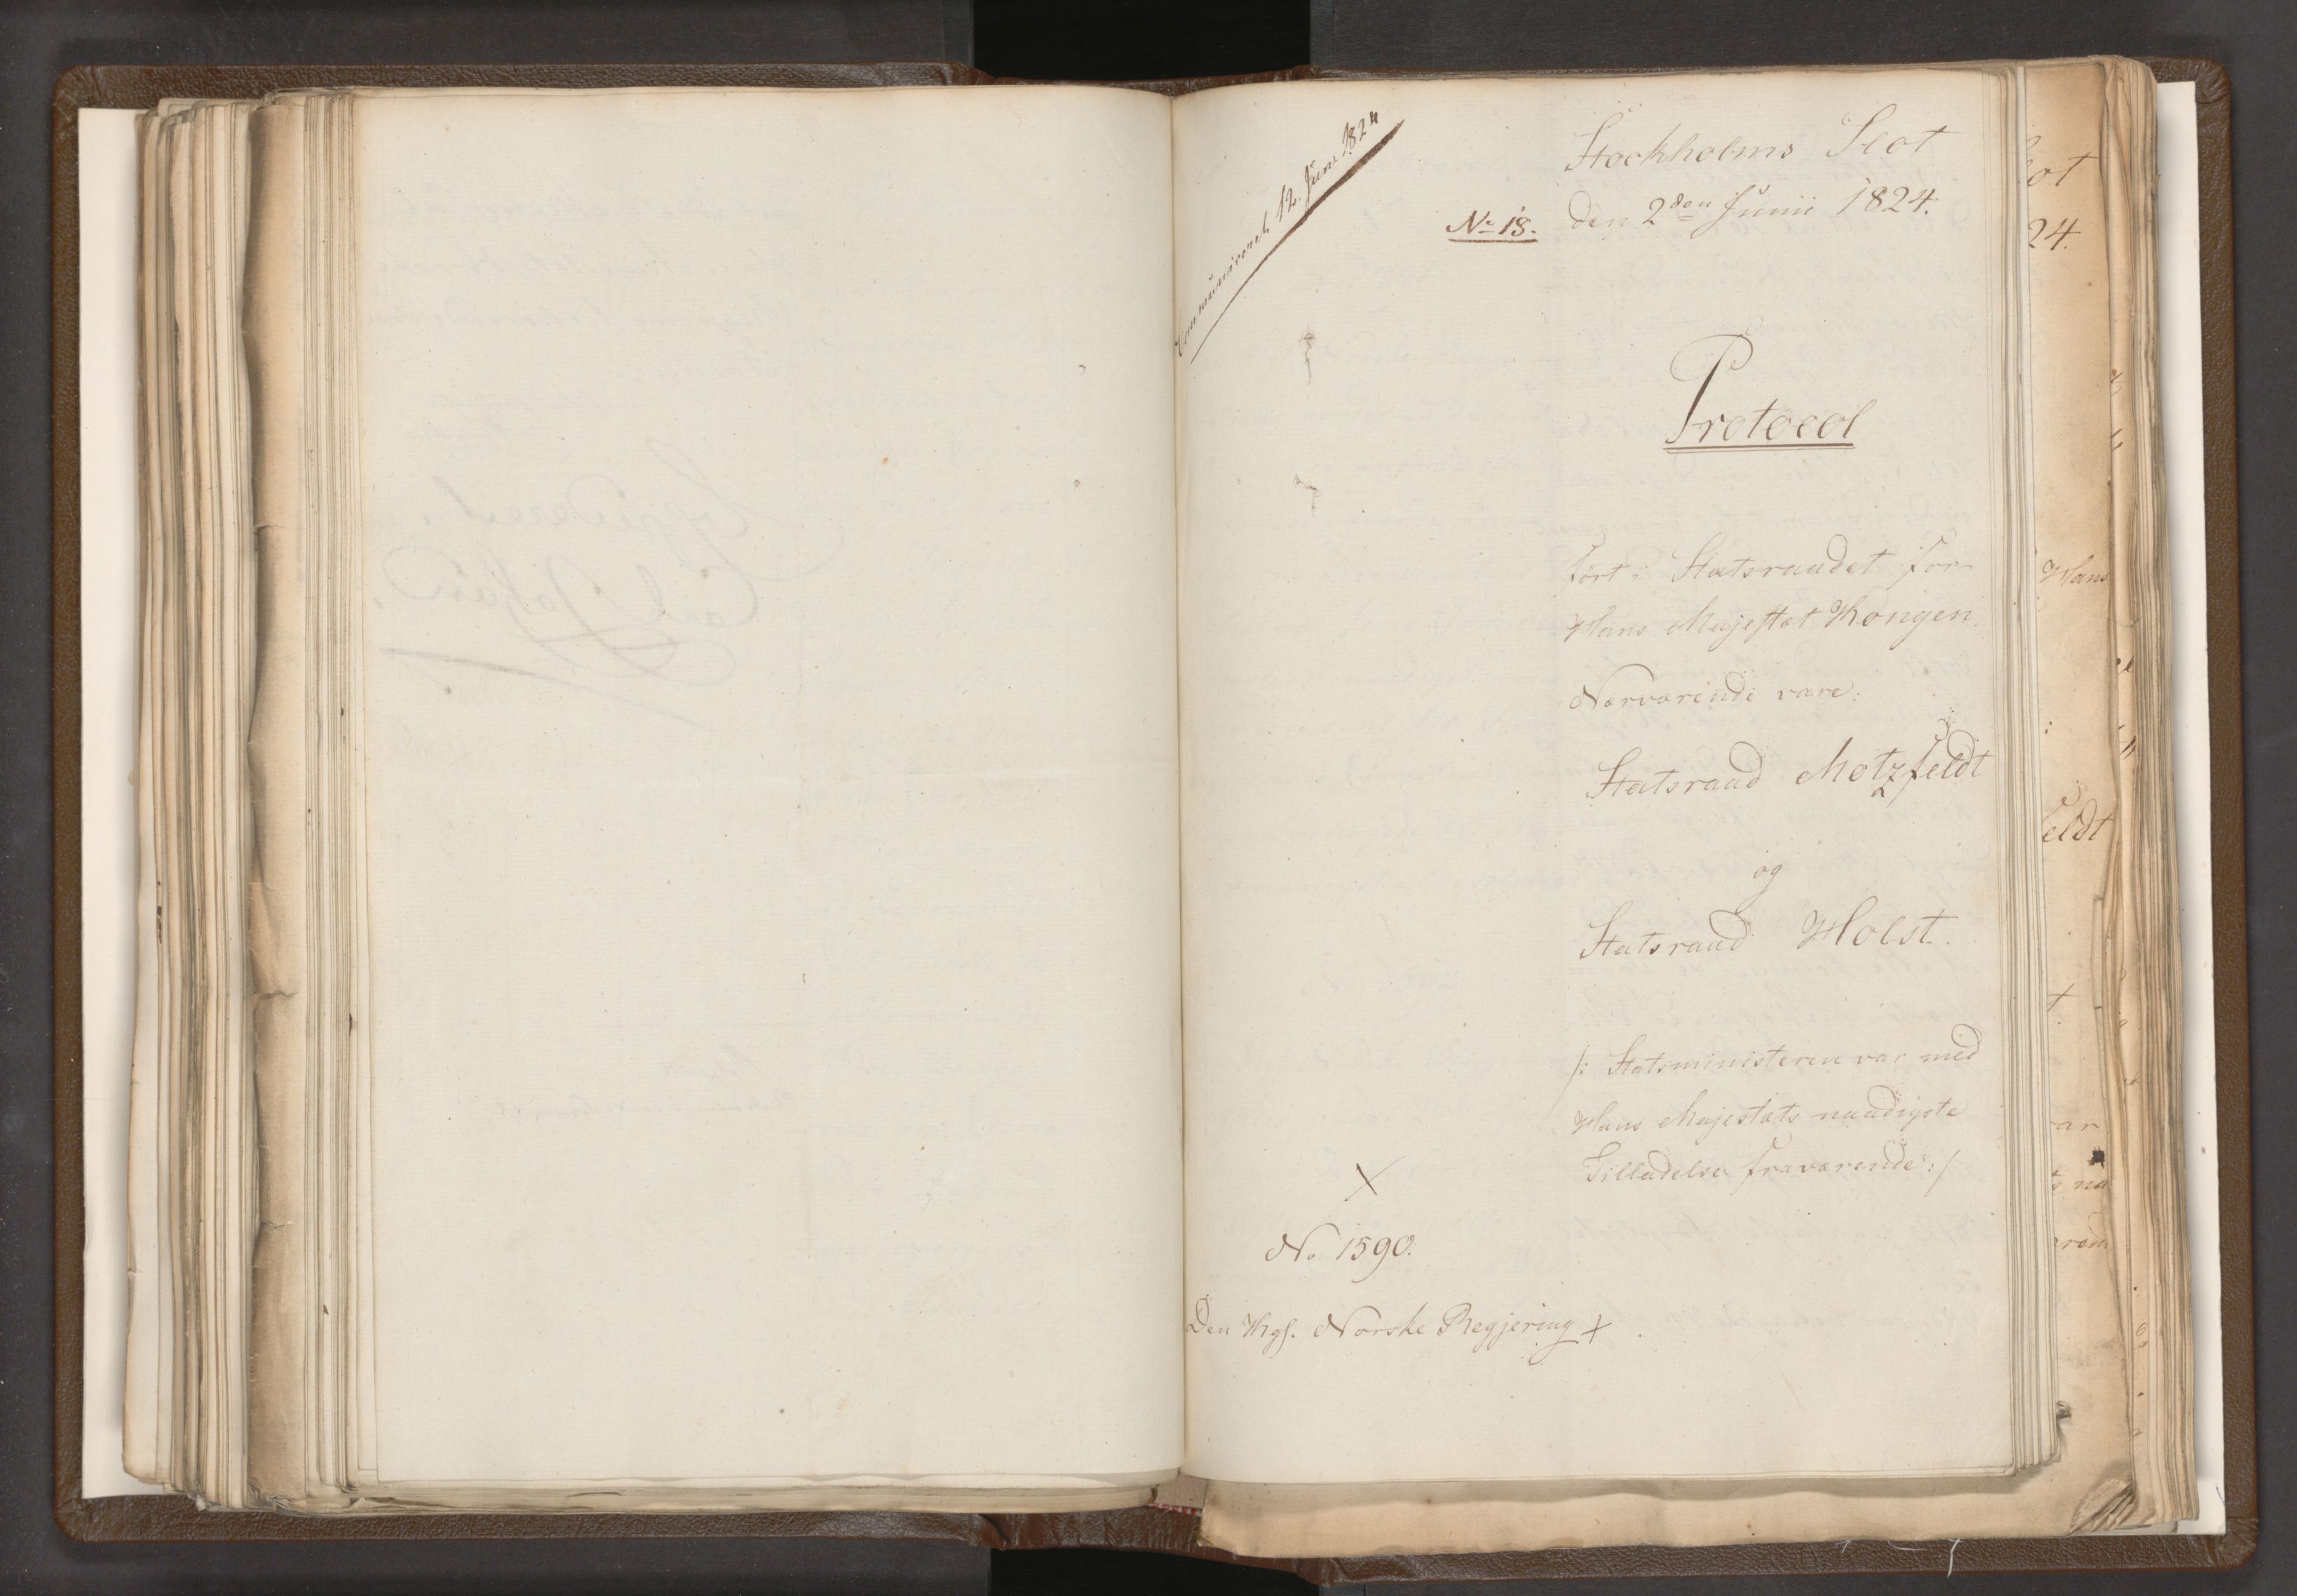 Communiceret 12. Juni 1824
Stockholms Slot
No 18. den 2den Junii 1824.
Protocol
ført i Statsraadet for
Hans Majestæt Kongen.
Nærværende vare:
Statsraad Motzfeldt
og
Statsraad Holst.
/: Statsministeren var med
Hans Majestæts naadigste
Tilladelse fraværende :/
X
No. 1590.
Den Kgl. Norske Regjering X